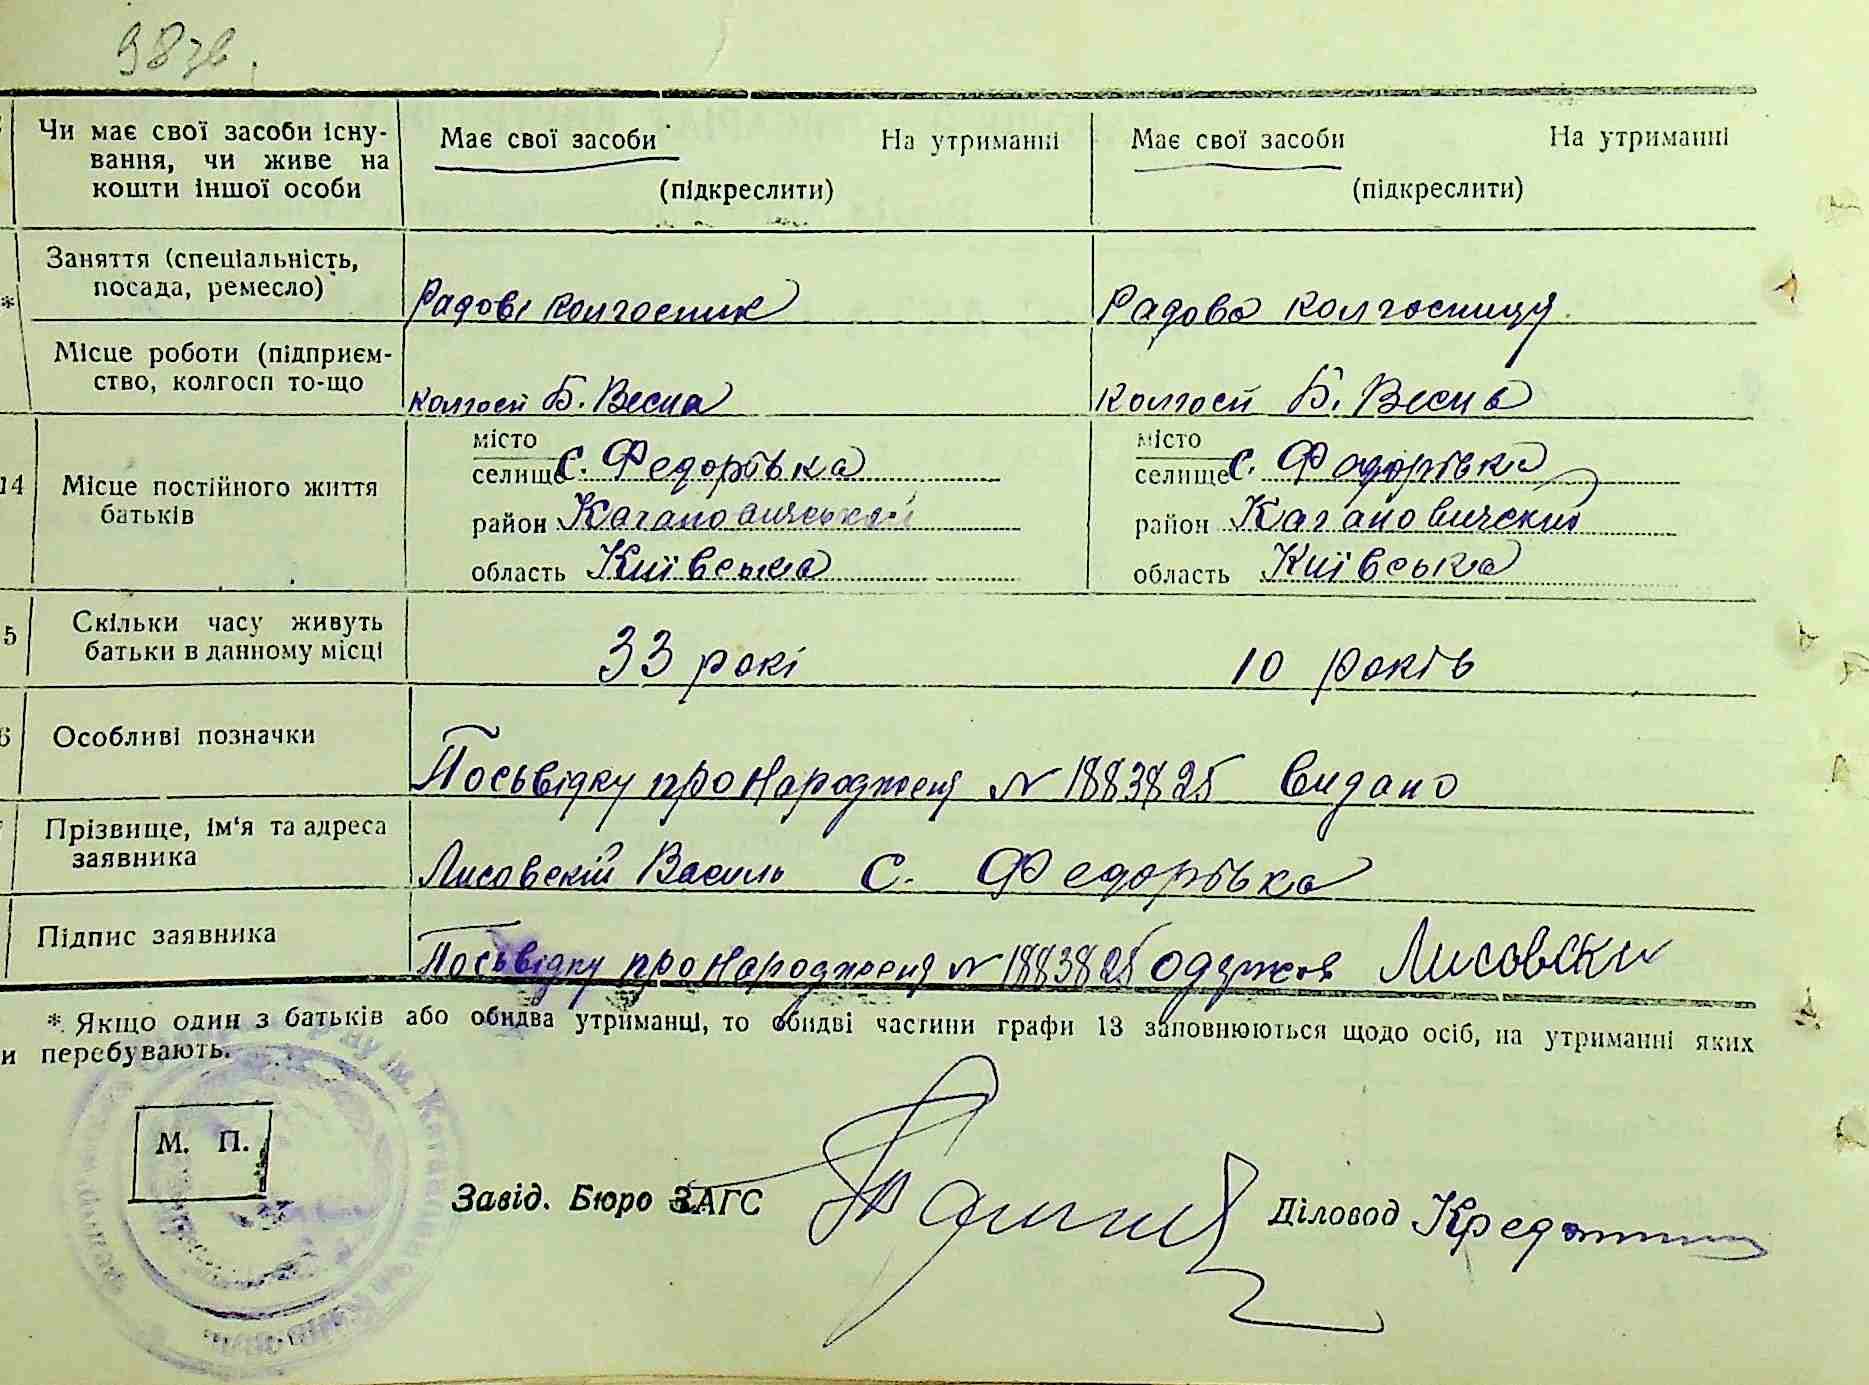 98зв.
Чи має свої засоби існу-
вання, чи живе на
кошти іншої особи
Має свої засоби На утриманні
(підкреслити)
Має свої засоби На утриманні
(підкреслити)
Заняття (спеціальність,
посада, ремесло)
*
Радові колгосник
Радова колгосницу
Місце роботи (підприєм-
ство, колгосп то-що
колгосп Б. Весна
колгосп Б. Весна
14 Місце постійного життя
батьків
місто
селище с. Федорівка
район Кагановичський
область Київська
місто
селище с. Федорівка
район Кагановичский
область Київська
5 Скільки часу живуть
батьки в данному місці
33 рокі
10 років
6 Особливі позначки
Посьвідку про народженя N 1883825 видано
Прізвище, ім'я та адреса
заявника
Лисовскій Василь с. Федорівка
Підпис заявника
Посьвідку про народженя N 1883825 одержов Лисовски
*. Якщо один з батьків або обидва утриманці, то обидві частини графи 13 заповнюються щодо осіб, на утриманні яких
и перебувають.
М. П.
Завід. Бюро ЗАГС
Діловод